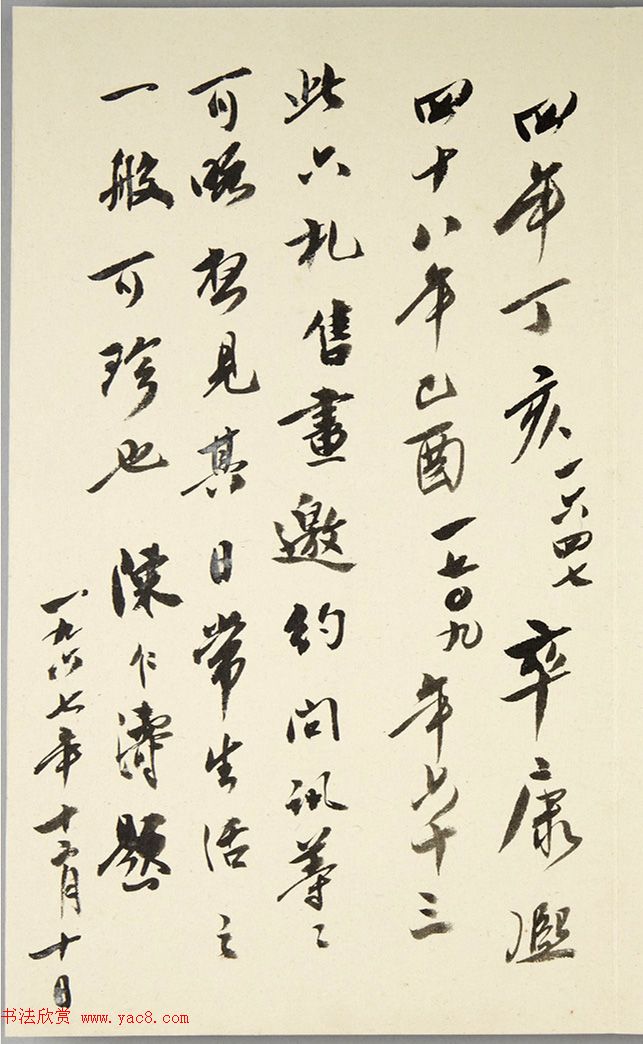 四年丁亥一六四七卒康熙
四十八年己酉一七〇九年七十三
此六札售畫邀約問訊等〻
可略想見其日常生活之
一般可珍也 陳仁濤題
一九六七年十二月十日
书法欣赏 www.yac8.com